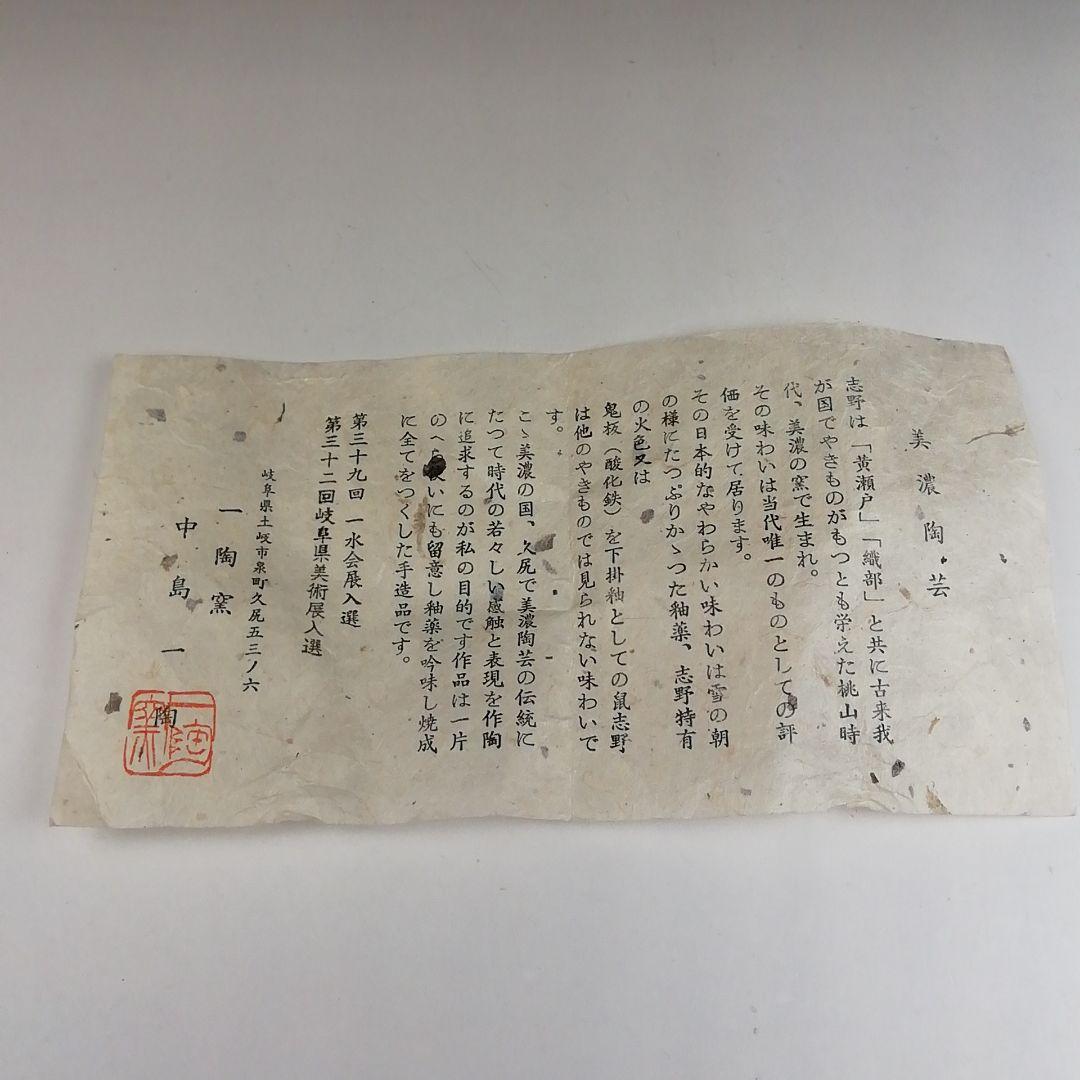 美濃陶芸
志野は「黄瀬戸」「織部」と共に古来我
が国でやきものがもつとも栄えた桃山時
代、美濃の窯で生まれ。
その味わいは当代唯一のものとしての評
価を受けて居ります。
その日本的なやわらかい味わいは雪の朝
の様にたつぷりかゝつた釉薬、志野特有
の火色又は
鬼板（酸化鉄）を下掛釉としての鼠志野
は他のやきものでは見られない味わいで
す。
こゝ美濃の国、久尻で美濃陶芸の伝統に
たつて時代の若々しい感触と表現を作陶
に追求するのが私の目的です作品は一片
のへら使いにも留意し釉薬を吟味し焼成
に全てをつくした手造品です。
第三十九回 一水会展入選
第三十二回岐阜県美術展入選
岐阜県土岐市泉町久尻五三ノ六
一陶窯
中島一陶
一陶窯